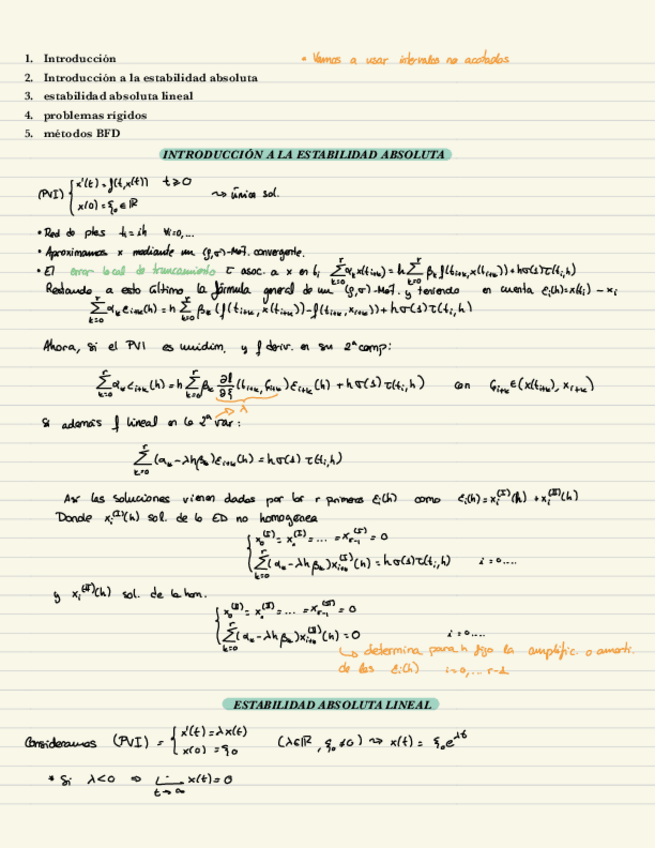 1. Introducción
• Vamos a usar intervalos no acotados
2. Introducción a la estabilidad absoluta
3. estabilidad absoluta lineal
4. problemas rígidos
5. métodos BFD
INTRODUCCIÓN A LA ESTABILIDAD ABSOLUTA
(PVI) { x'(t) = f(t,x(t)) t ≥ 0
x(0) = ξ₀ ∈ ℝ ⇝ única sol.
• Red de ptos h = ih ∀i=0,...
• Aproximamos x mediante un (ρ,σ)-MoT. convergente.
• El error local de truncamiento τ asoc. a x en tᵢ Σ αₖ x(tᵢ₊ₖ) = h Σ βₖ f(tᵢ₊ₖ, x(tᵢ₊ₖ)) + hσ(1)τ(tᵢ,h)
Restando a esto último la fórmula general de un (ρ,σ)-MoT. y teniendo en cuenta εᵢ(h)=x(tᵢ) − xᵢ
Σ αₖ εᵢ₊ₖ(h) = h Σ βₖ (f(tᵢ₊ₖ, x(tᵢ₊ₖ)) − f(tᵢ₊ₖ, xᵢ₊ₖ)) + hσ(1)τ(tᵢ,h)
Ahora, si el PVI es unidim. y f deriv. en su 2ª comp:
Σ αₖ εᵢ₊ₖ(h) = h Σ βₖ ∂f/∂ξ (tᵢ₊ₖ, ζᵢ₊ₖ) εᵢ₊ₖ(h) + hσ(1)τ(tᵢ,h) con ζᵢ₊ₖ ∈ (x(tᵢ₊ₖ), xᵢ₊ₖ)
Si además f lineal en la 2ª var: → λ
Σ (αₖ − λhβₖ) εᵢ₊ₖ(h) = hσ(1) τ(tᵢ,h)
Así las soluciones vienen dadas por los r primeros εᵢ(h) como εᵢ(h) = xᵢ⁽ᴵ⁾(h) + xᵢ⁽ᴵᴵ⁾(h)
Donde xᵢ⁽ᴵ⁾(h) sol. de la ED no homogénea
{ x₀⁽ᴵ⁾ = x₁⁽ᴵ⁾ = ... = xᵣ₋₁⁽ᴵ⁾ = 0
Σ (αₖ − λhβₖ) xᵢ₊ₖ⁽ᴵ⁾(h) = hσ(1)τ(tᵢ,h) i = 0....
y xᵢ⁽ᴵᴵ⁾(h) sol. de la hom.
{ x₀⁽ᴵᴵ⁾ = x₁⁽ᴵᴵ⁾ = ... = xᵣ₋₁⁽ᴵᴵ⁾ = 0
Σ (αₖ − λhβₖ) xᵢ₊ₖ⁽ᴵᴵ⁾(h) = 0 i = 0....
↳ determina para h fijo la amplific. o amorti.
de los εᵢ(h) i=0,... r-1
ESTABILIDAD ABSOLUTA LINEAL
Consideramos (PVI) = { x'(t) = λx(t)
x(0) = ξ₀ (λ∈ℝ, ξ₀ ≠ 0) ⇝ x(t) = ξ₀e^λt
* Si λ<0 ⇒ lim x(t) = 0
t→∞